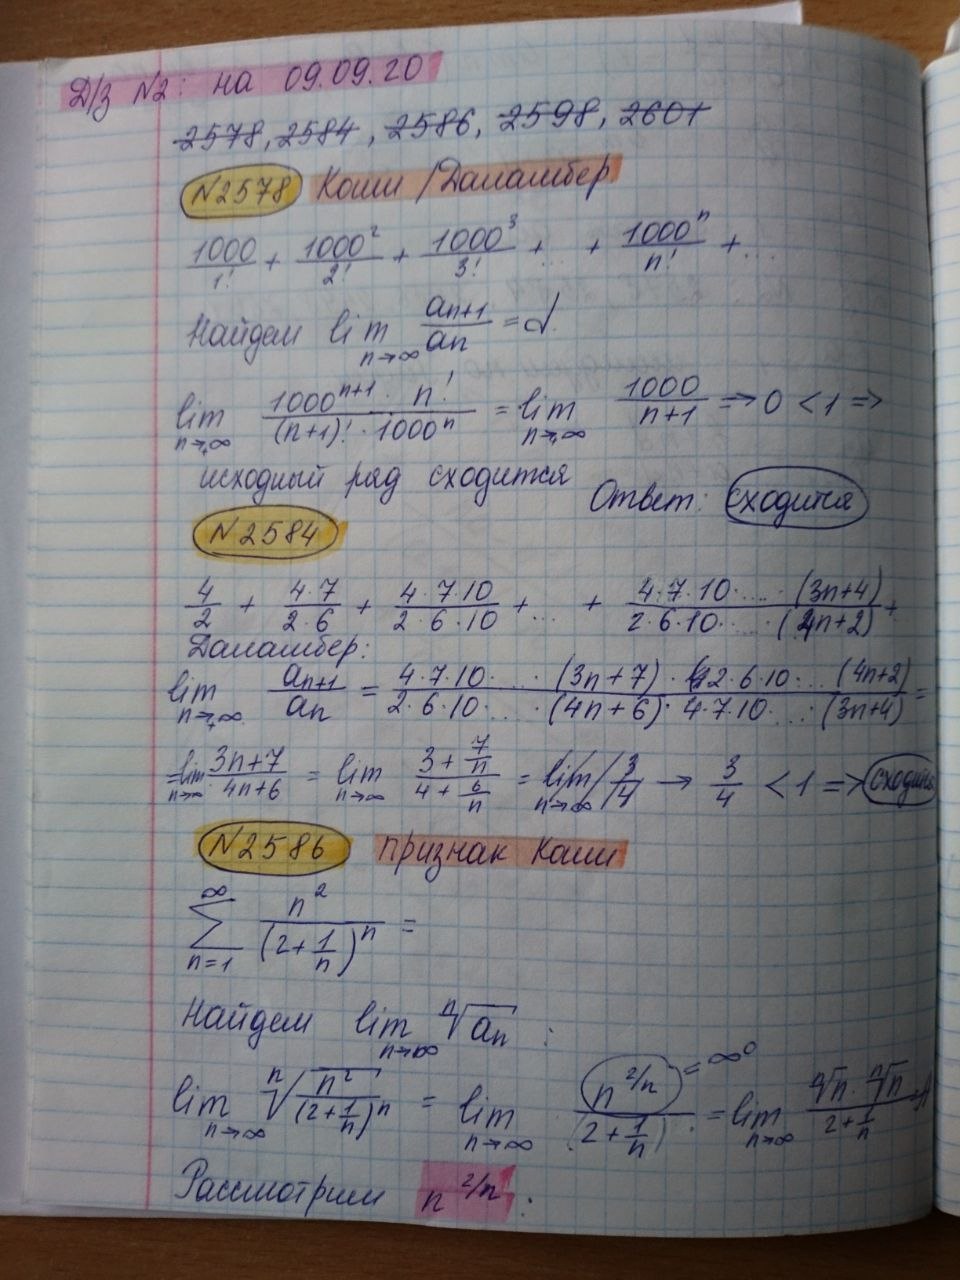 Д/з №2: на 09.09.20
2578, 2584, 2586, 2598, 2601
№2578 Коши / Даламбер
1000/1! + 1000²/2! + 1000³/3! + ... + 1000ⁿ/n! + ...
Найдем lim n→∞ aₙ₊₁/aₙ = d.
lim n→∞ 1000ⁿ⁺¹ · n!/(n+1)! · 1000ⁿ = lim n→∞ 1000/n+1 => 0 < 1 =>
исходный ряд сходится Ответ: сходится
№2584
4/2 + 4·7/2·6 + 4·7·10/2·6·10 + ... + 4·7·10·...·(3n+4)/2·6·10·...·(4n+2) +
Даламбер:
lim n→∞ aₙ₊₁/aₙ = 4·7·10·...·(3n+7)·2·6·10·...(4n+2)/2·6·10·...·(4n+6)·4·7·10·...·(3n+4) =
= lim n→∞ 3n+7/4n+6 = lim n→∞ 3+7/n/4+6/n = lim n→∞ 3/4 → 3/4 < 1 => сходится
№2586 признак Коши
∞ Σ n=1 n²/(2+1/n)ⁿ =
Найдем lim n→∞ ⁿ√aₙ :
lim n→∞ ⁿ√n²/(2+1/n)ⁿ = lim n→∞ n^2/n/(2+1/n) = ∞⁰ = lim n→∞ ⁿ√n · ⁿ√n/2+1/n
Рассмотрим n^2/n :